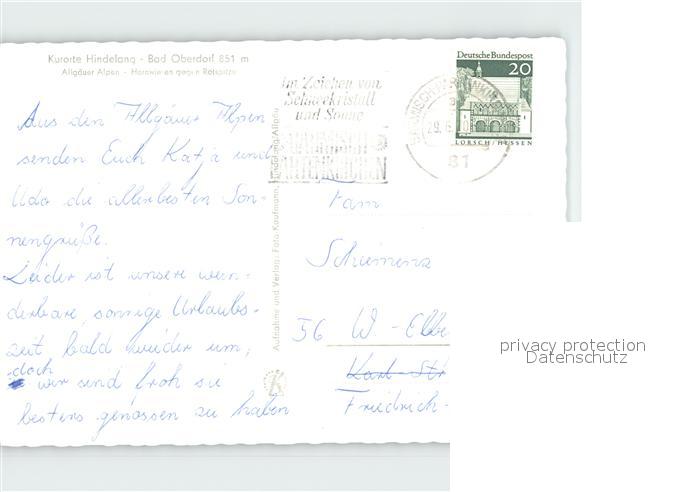 Kurorte Hindelang - Bad Oberdorf 851 m
Allgäuer Alpen - Hornwiesen gegen Rotspitze
Aus den Allgäuer Alpen
senden Euch Katja und
Udo die allerbesten Son-
nengrüße.
Leider ist unsere wun-
derbare, sonnige Urlaubs-
zeit bald wieder um,
doch
wir sind froh sie
bestens genossen zu haben
Aufnahme und Verlag: Foto Kaufmann, Hindelang/Allgäu
Im Zeichen von
Schneekristall
und Sonne
GARMISCH-
PARTENKIRCHEN
29.6.
81
Deutsche Bundespost
20
LORSCH/HESSEN
Fam
56 W-Elbe
Karl-Str
Friedrich-
privacy protection
Datenschutz